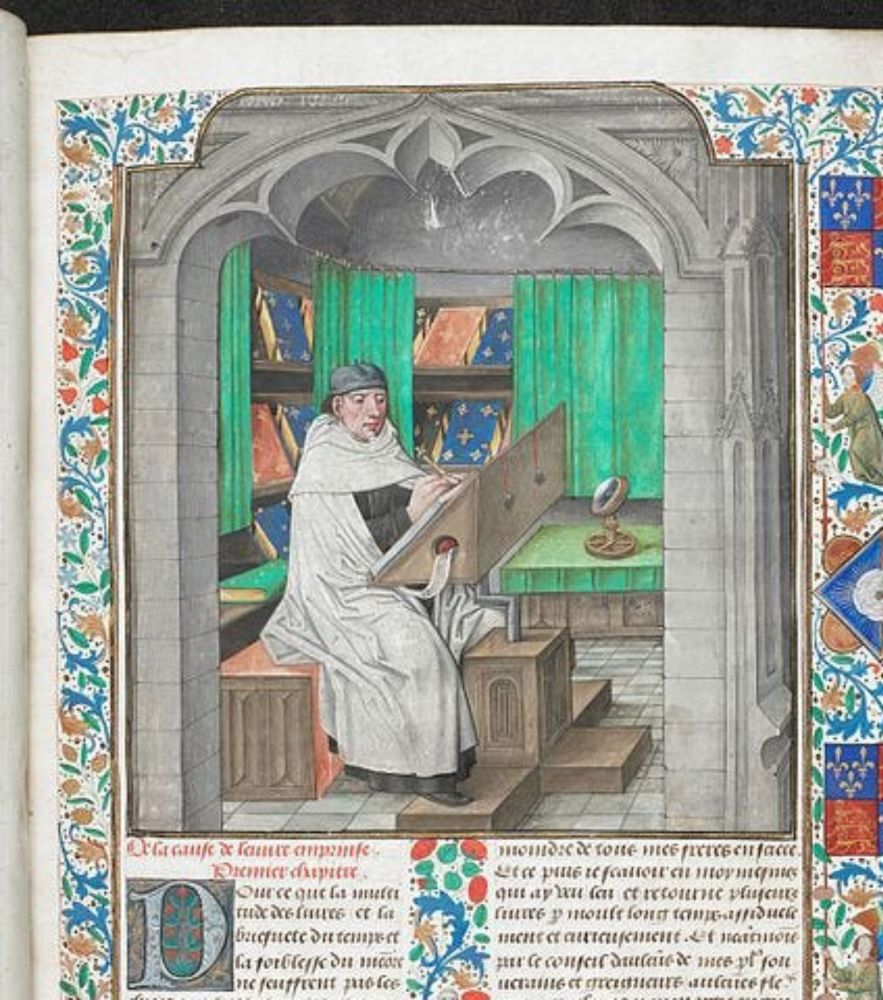 De la cause de leuure emprinse.
Premier chapitre.
Pour ce que la multi
tude des liures et la
briefuete du temps et
la foiblesse du
ne seuffrent pas les
moindre de tous mes freres en
Et ce puis ie scauoir en moy mesmes
qui ay veu leu et retourne plusieurs
liures p moult long temps assiduele
ment et curieusement. Et neātmois
par le conseil daulcūs de mes sou
uerains et greigneurs